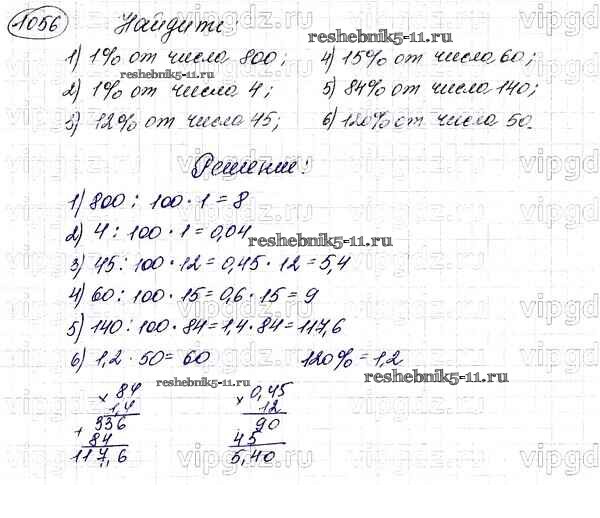 1056 Найдите:
1) 1% от числа 800; 4) 15% от числа 60;
2) 1% от числа 4; 5) 84% от числа 140;
3) 12% от числа 45; 6) 120% от числа 50.
Решение:
1) 800 : 100 · 1 = 8
2) 4 : 100 · 1 = 0,04
3) 45 : 100 · 12 = 0,45 · 12 = 5,4
4) 60 : 100 · 15 = 0,6 · 15 = 9
5) 140 : 100 · 84 = 1,4 · 84 = 117,6
6) 1,2 · 50 = 60 120% = 1,2
× 84 × 0,45
1,4 12
336 90
+ 84 45
117,6 5,40
reshebnik5-11.ru
reshebnik5-11.ru
reshebnik5-11.ru
reshebnik5-11.ru
reshebnik5-11.ru
vipgdz.ru